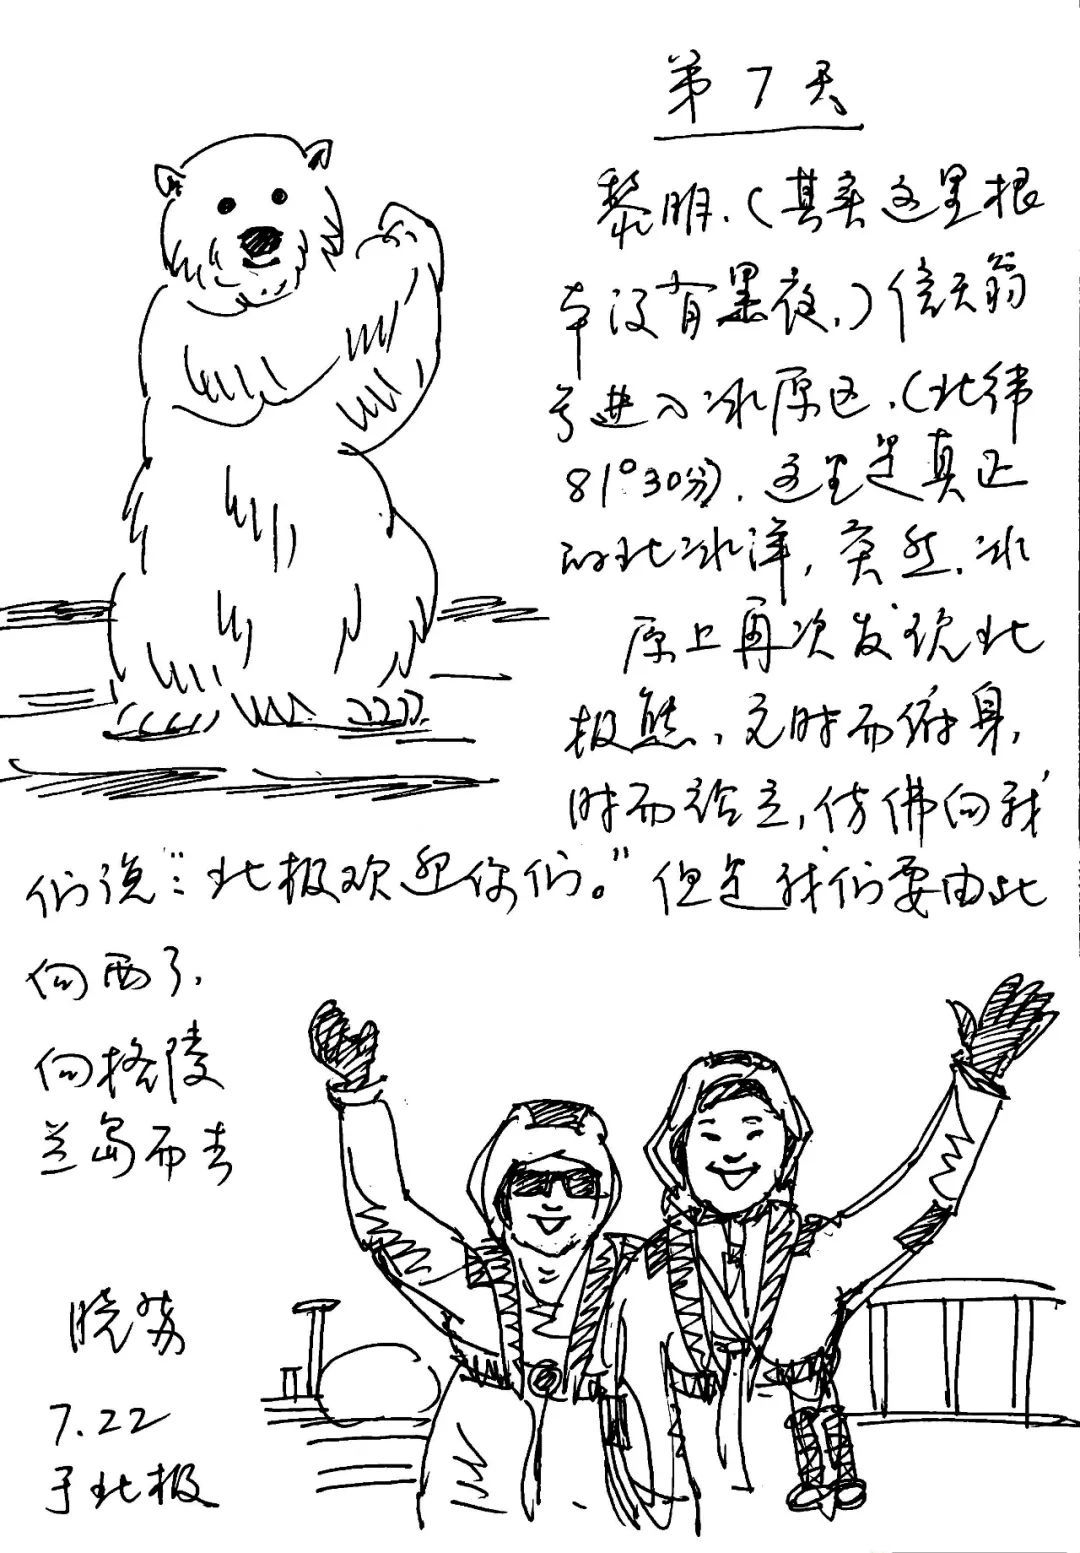 第7天
黎明.(其实这里根
本没有黑夜,)信天翁
号进入冰原区.(北纬
81°30分).这里是真正
的北冰洋,突然.冰
原上再次发现北
极熊,它时而俯身,
时而站立,仿佛向我
们说:"北极欢迎你们。"但是我们要由此
向西了,
向格陵
兰岛而去
晓苏
7.22
于北极